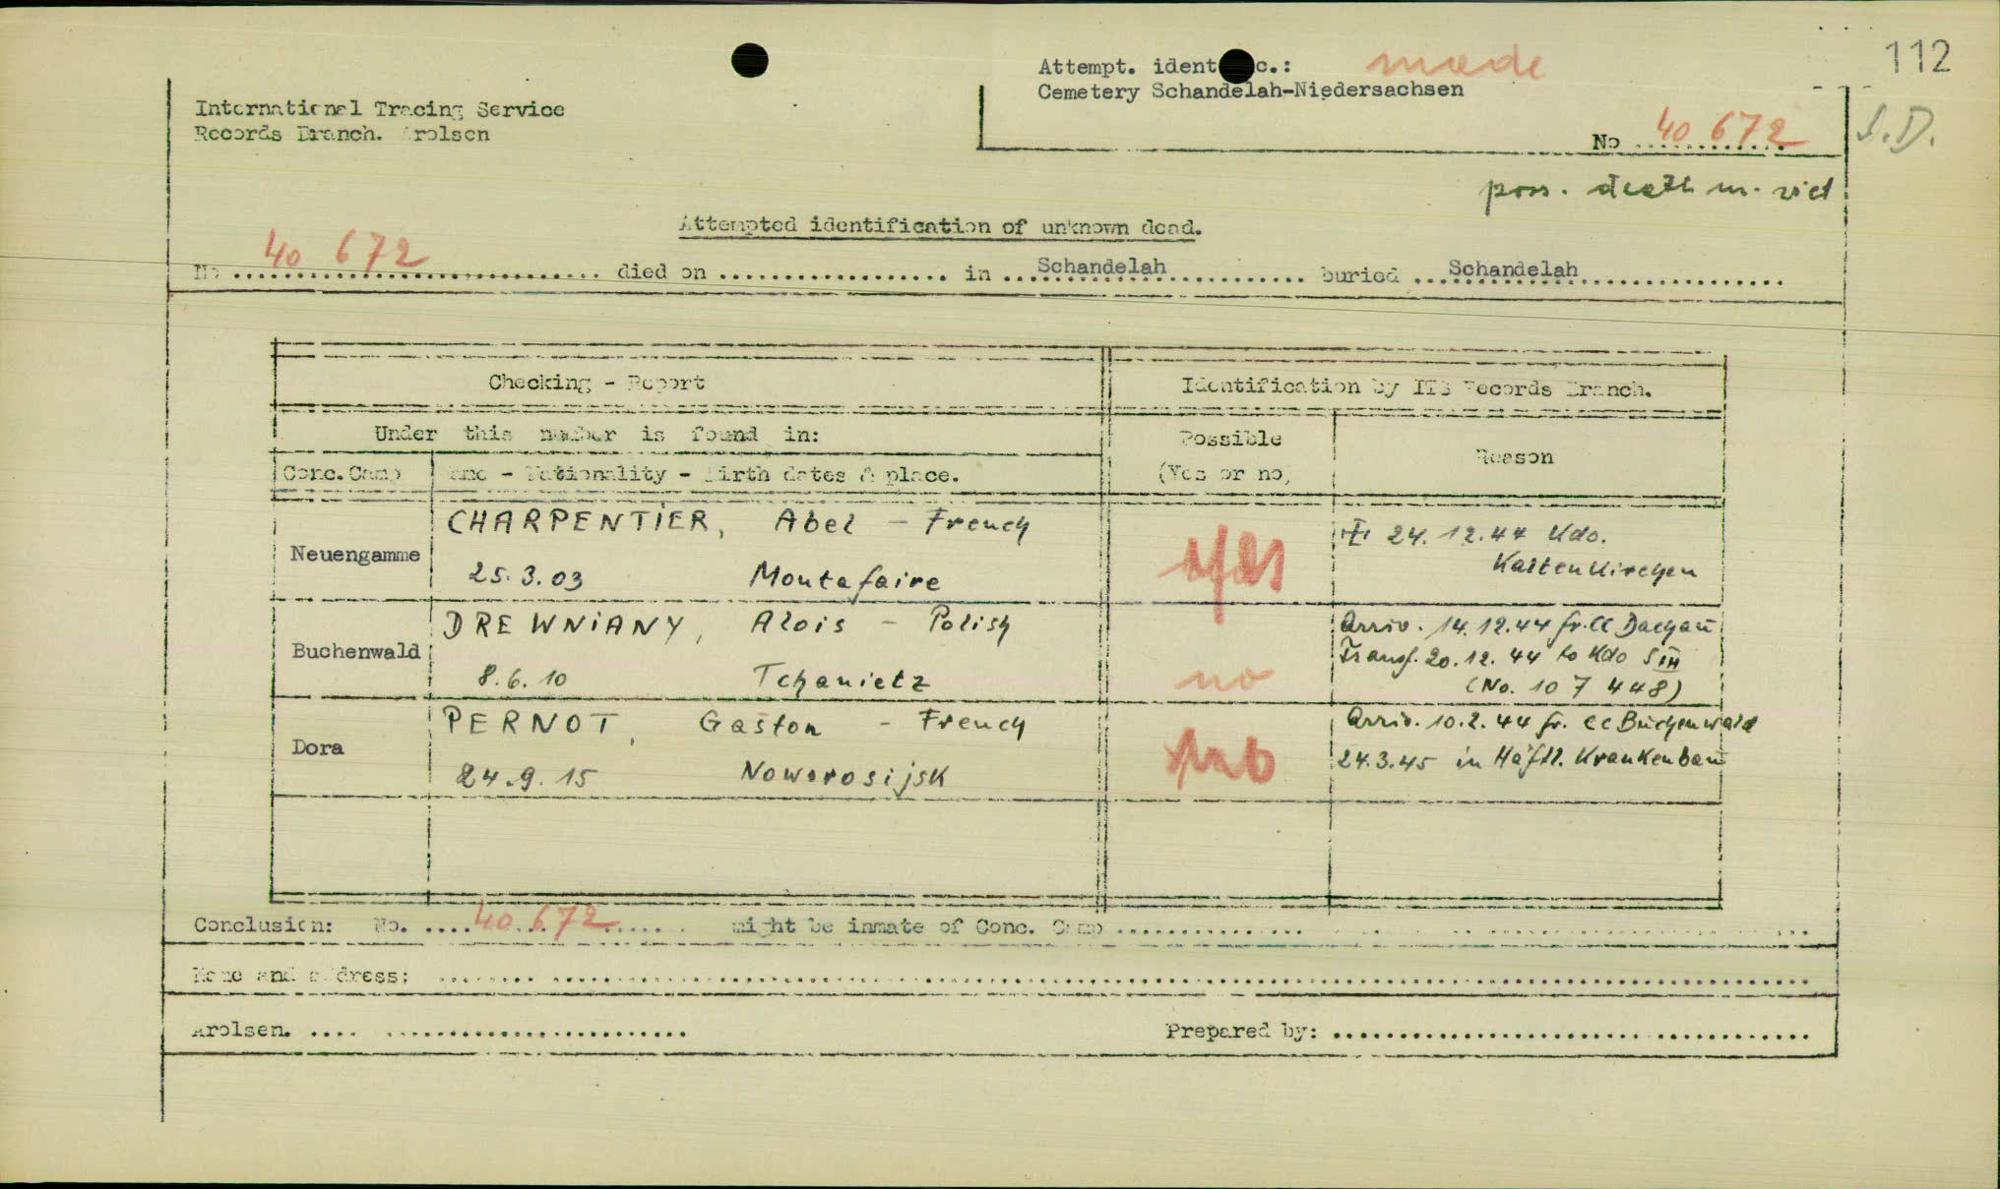 112
Attempt. ident c.: made
Cemetery Schandelah-Niedersachsen
International Tracing Service
Records Branch. Arolsen
No 40 672
S.D.
poss. death
Attempted identification of unknown dead.
No 40 672 died on in Schandelah buried Schandelah
Checking - Report
Identification by ITS Records Branch.
Under this number is found in:
Possible
(Yes or no)
Reason
Conc.Camp Name - Nationality - Birth dates & place.
Neuengamme
CHARPENTIER, Abel - French
25.3.03 Montafaire
24.12.44 Kdo.
Kaltenkirchen
Buchenwald
DREWNIANY, Alois - Polish
8.6.10 Tchanietz
no
Arriv. 14.12.44 fr. CC Dachau
Transf. 20.12.44 to Kdo S III
(No. 107 448)
Dora
PERNOT, Gaston - French
24.9.15 Noworosijsk
Arriv. 10.2.44 fr. CC Buchenwald
24.3.45 in Häftl. Krankenbau
Conclusion: No. 40 672 might be inmate of Conc. Camp
Name and address:
Arolsen. Prepared by: